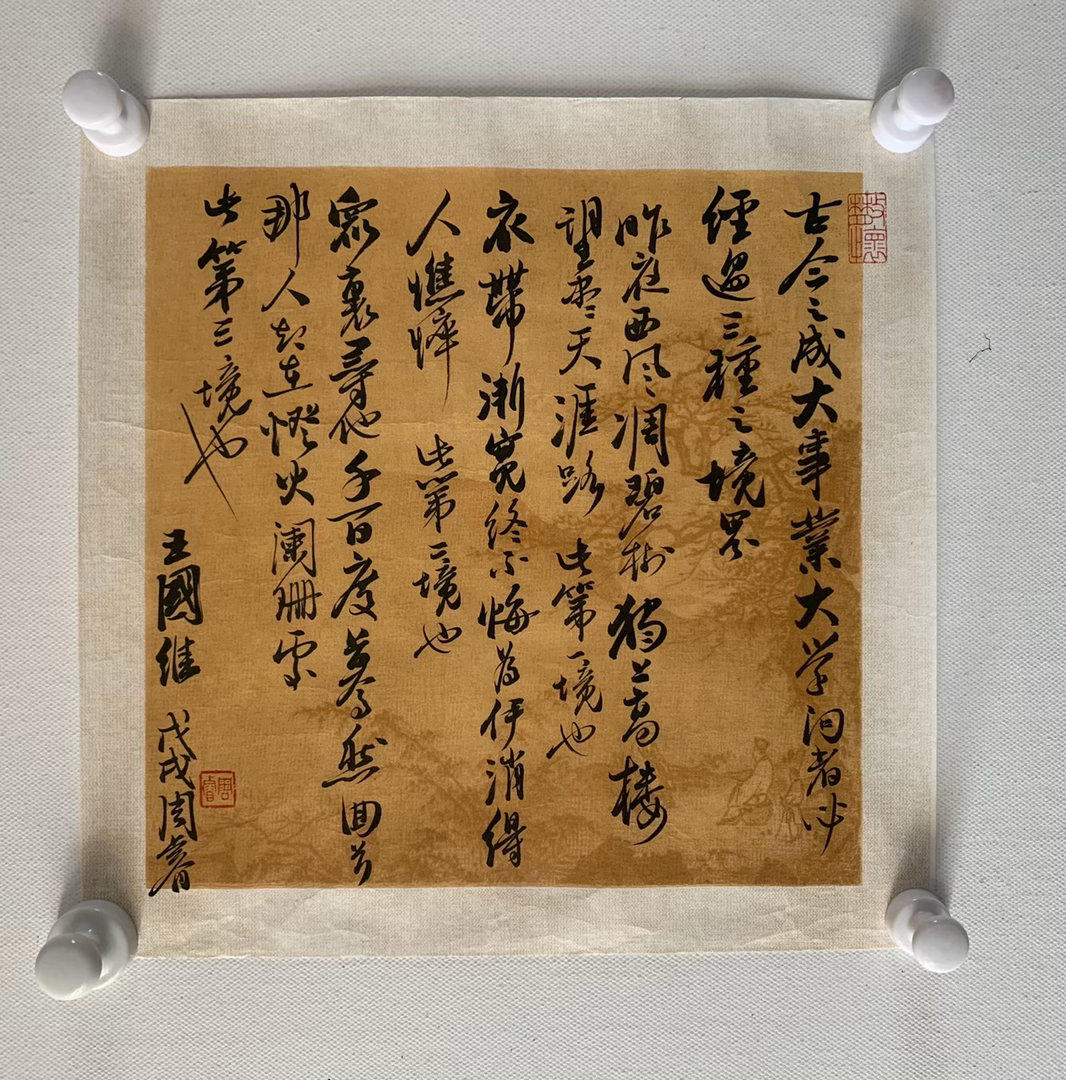 古今之成大事業大学问者必
經過三種之境界
昨夜西风凋碧树獨上高楼
望尽天涯路 此第一境也
衣帶漸寬終不悔為伊消得
人憔悴 此第二境也
眾裏尋他千百度驀然回首
那人却在燈火瀾珊處
此第三境也
王國維 戊戌周睿
周睿